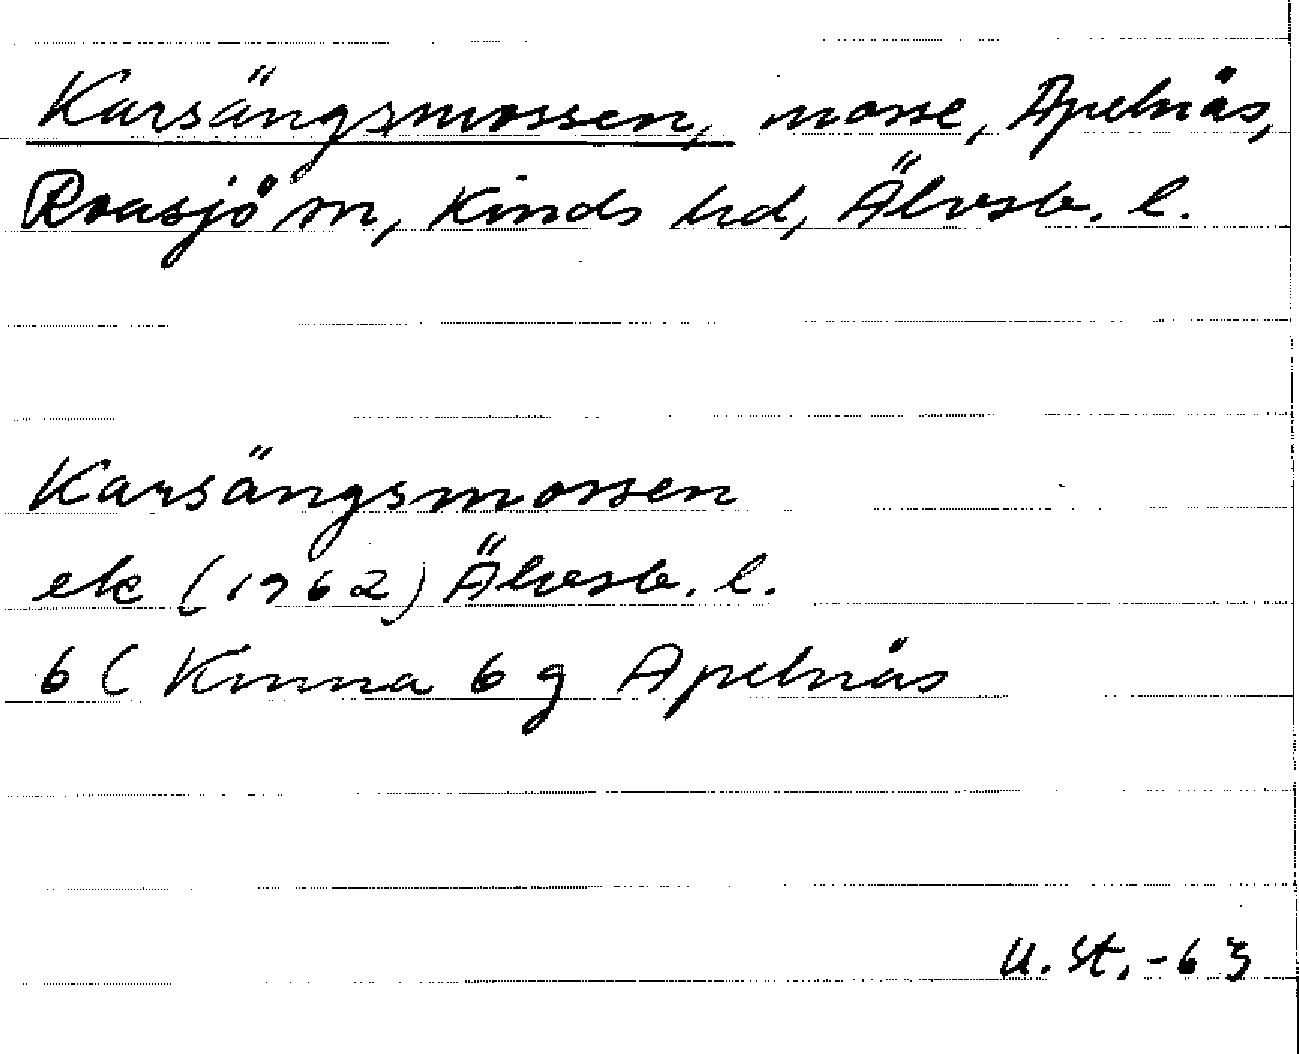 Karsängsmossen, mosse, Apelnäs,
Roasjö sn, Kinds hd, Älvsb. l.
Karsängsmossen
ek (1962) Älvsb. l.
6 C Kinna 6 g Apelnäs
U. St. -63